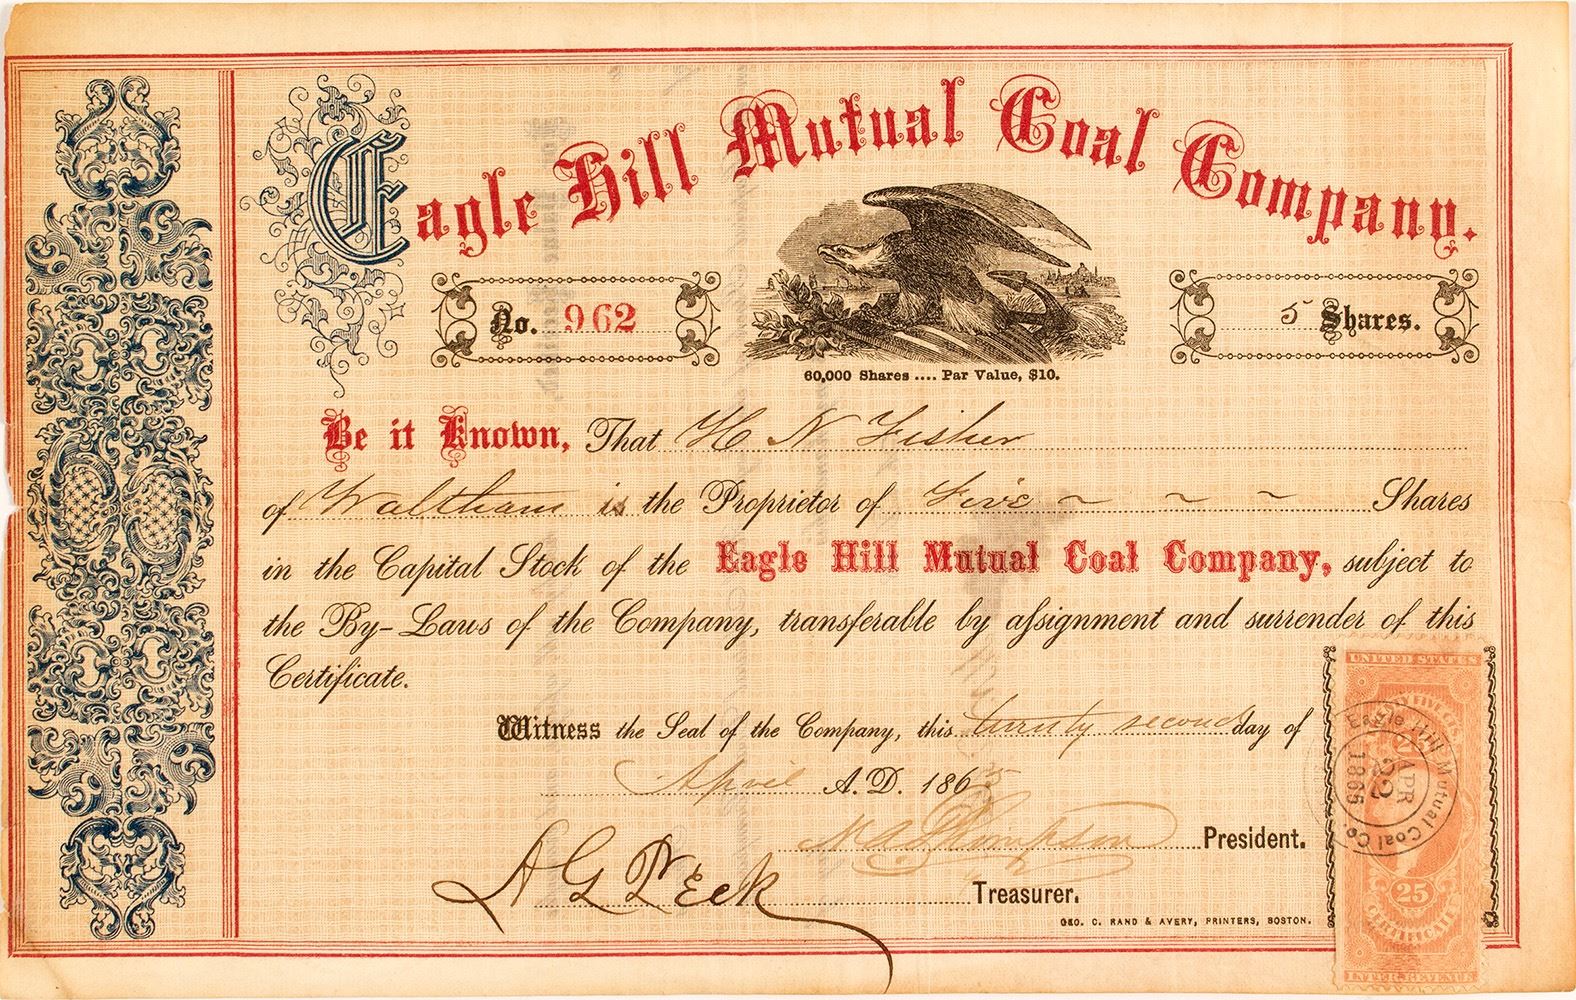 Eagle Hill Mutual Coal Company.
No. 962
5 Shares.
60,000 Shares .... Par Value, $10.
Be it Known, That H N Fisher
of Waltham is the Proprietor of Five ~ ~ ~ Shares
in the Capital Stock of the Eagle Hill Mutual Coal Company, subject to
the By-Laws of the Company, transferable by assignment and surrender of this
Certificate.
Witness the Seal of the Company, this twenty second day of
April A.D. 1865
Thompson President.
A G Peck Treasurer.
GEO. C. RAND & AVERY, PRINTERS, BOSTON.
UNITED STATES
TWENTY FIVE CTS.
25
Eagle Hill Mutual Coal Co.
APR
22
1865
25
CERTIFICATE
INTER. REVENUE